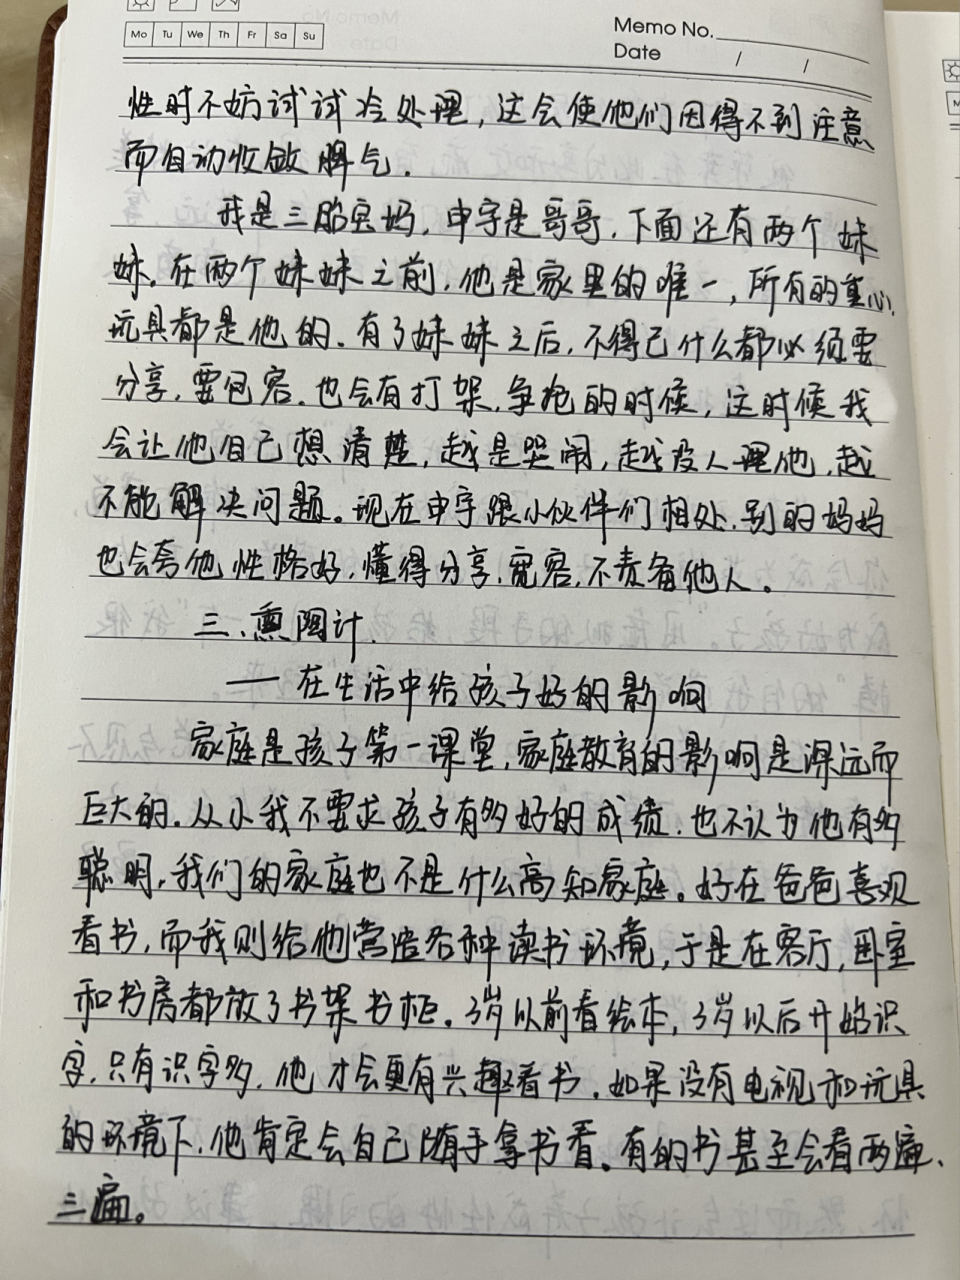 Mo Tu We Th Fr Sa Su
Memo No.
Date / /
性时不妨试试冷处理，这会使他们因得不到注意
而自动收敛脾气.
我是三胎宝妈，申宇是哥哥，下面还有两个妹
妹.在两个妹妹之前，他是家里的唯一，所有的重心,
玩具都是他的.有了妹妹之后，不得已什么都必须要
分享，要包容.也会有打架，争抢的时候，这时候我
会让他自己想清楚，越是哭闹，越没人理他，越
不能解决问题。现在申宇跟小伙伴们相处，别的妈妈
也会夸他性格好，懂得分享，宽容，不责备他人。
三、熏陶计.
——在生活中给孩子好的影响
家庭是孩子第一课堂，家庭教育的影响是深远而
巨大的.从小我不要求孩子有多好的成绩，也不认为他有多
聪明，我们的家庭也不是什么高知家庭。好在爸爸喜欢
看书，而我则给他营造各种读书环境，于是在客厅，卧室
和书房都放了书架书柜.3岁以前看绘本，3岁以后开始识
字.只有识字多，他才会更有兴趣看书.如果没有电视和玩具
的环境下，他肯定会自己随手拿书看。有的书甚至会看两遍、
三遍。